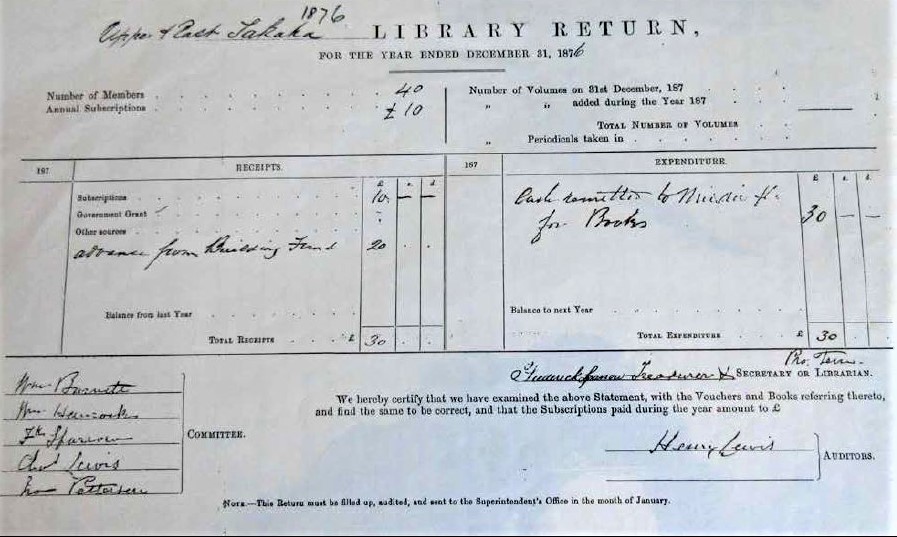 1876
Upper & East Takaka LIBRARY RETURN,
FOR THE YEAR ENDED DECEMBER 31, 1876
Number of Members 40
Annual Subscriptions £10
Number of Volumes on 31st December, 187
„ „ added during the Year 187
TOTAL NUMBER OF VOLUMES
„ Periodicals taken in
187 RECEIPTS.
£ s. d.
Subscriptions 10 — —
Government Grant
Other sources
advance from Building Fund 20
Balance from last Year
TOTAL RECEIPTS £ 30
187 EXPENDITURE.
£ s. d.
Cash remitted to Mudie
for Books 30 — —
Balance to next Year
TOTAL EXPENDITURE £ 30
Pro. Tem.
Frederick Sparrow Treasurer & SECRETARY OR LIBRARIAN.
We hereby certify that we have examined the above Statement, with the Vouchers and Books referring thereto,
and find the same to be correct, and that the Subscriptions paid during the year amount to £
Wm Burnett
Wm Hancock
Fk Sparrow
Chas Lewis
Patterson
COMMITTEE.
Henry Lewis
AUDITORS.
NOTE.—This Return must be filled up, audited, and sent to the Superintendent's Office in the month of January.